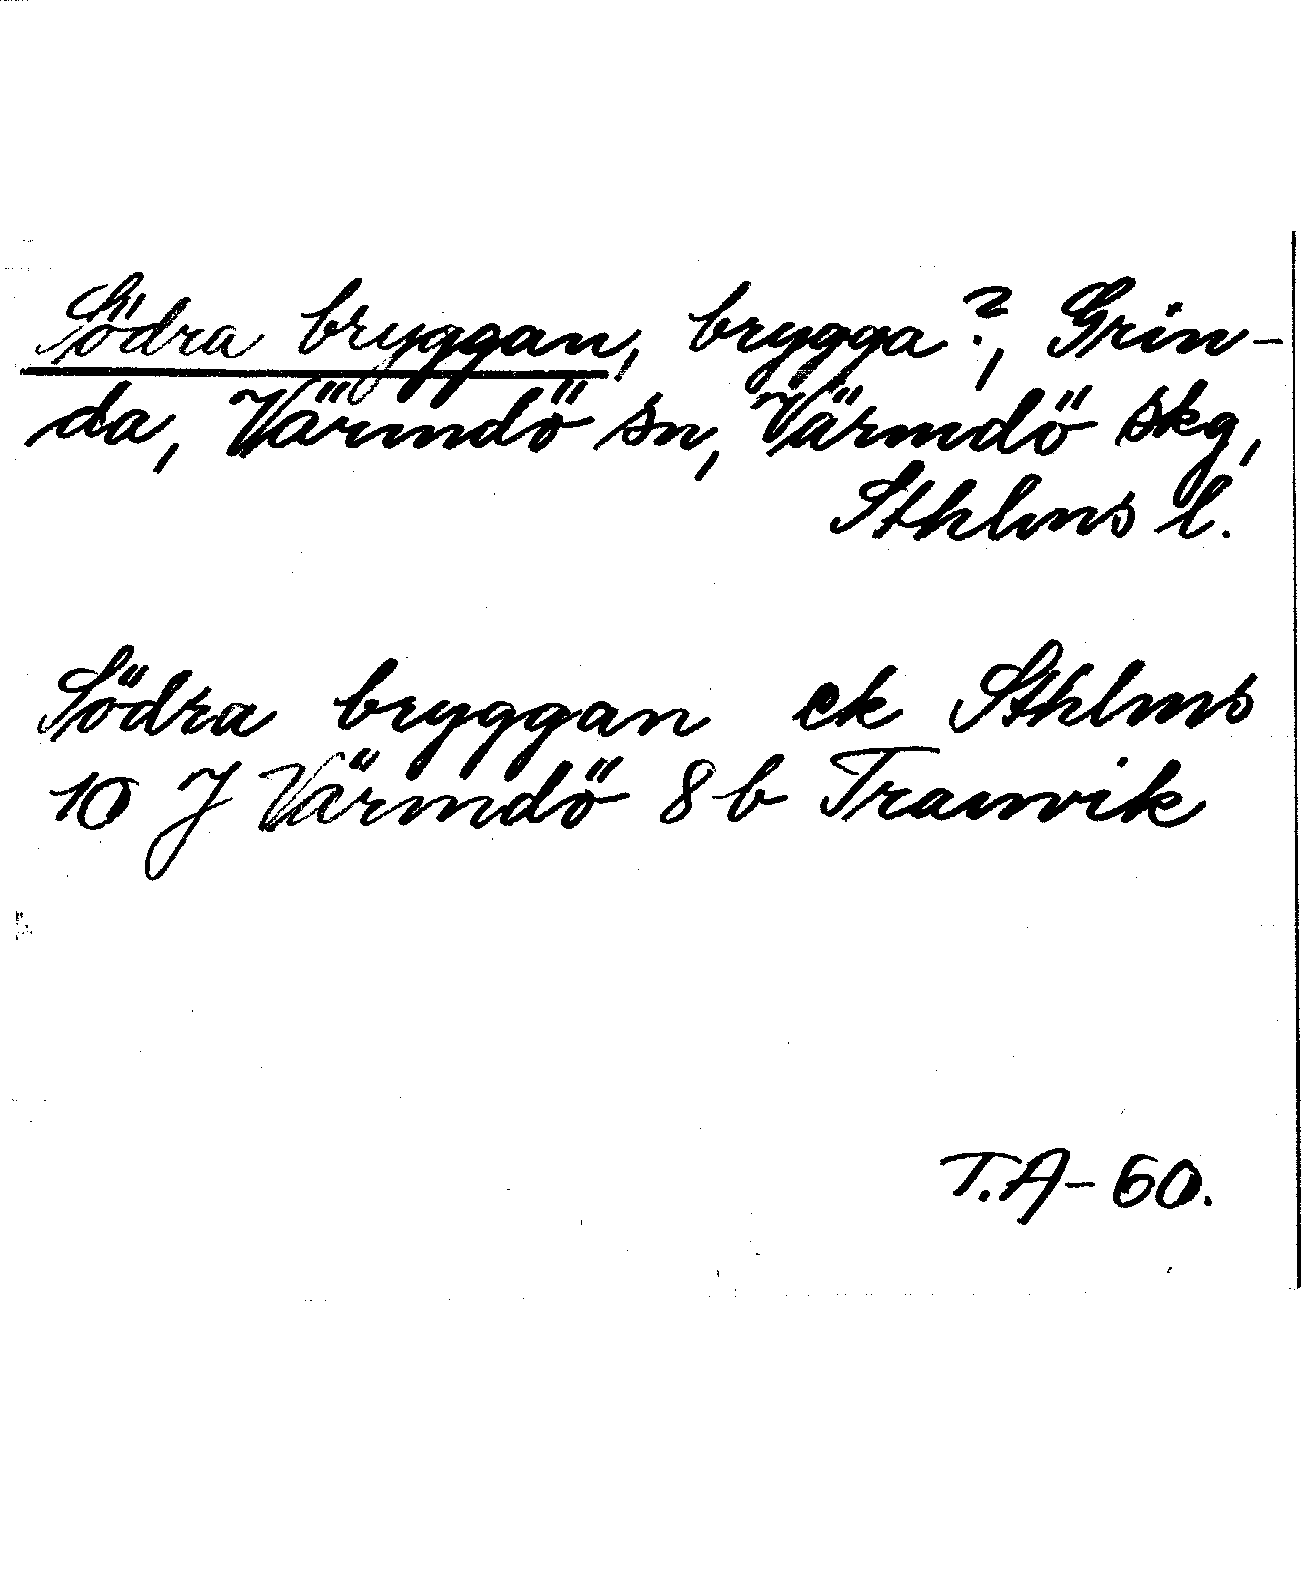 Södra bryggan, brygga?, Grin-
da, Värmdö sn, Värmdö skg,
Sthlms l.
Södra bryggan ek Sthlms
10 J Värmdö 8 b Tranvik
T.A-60.